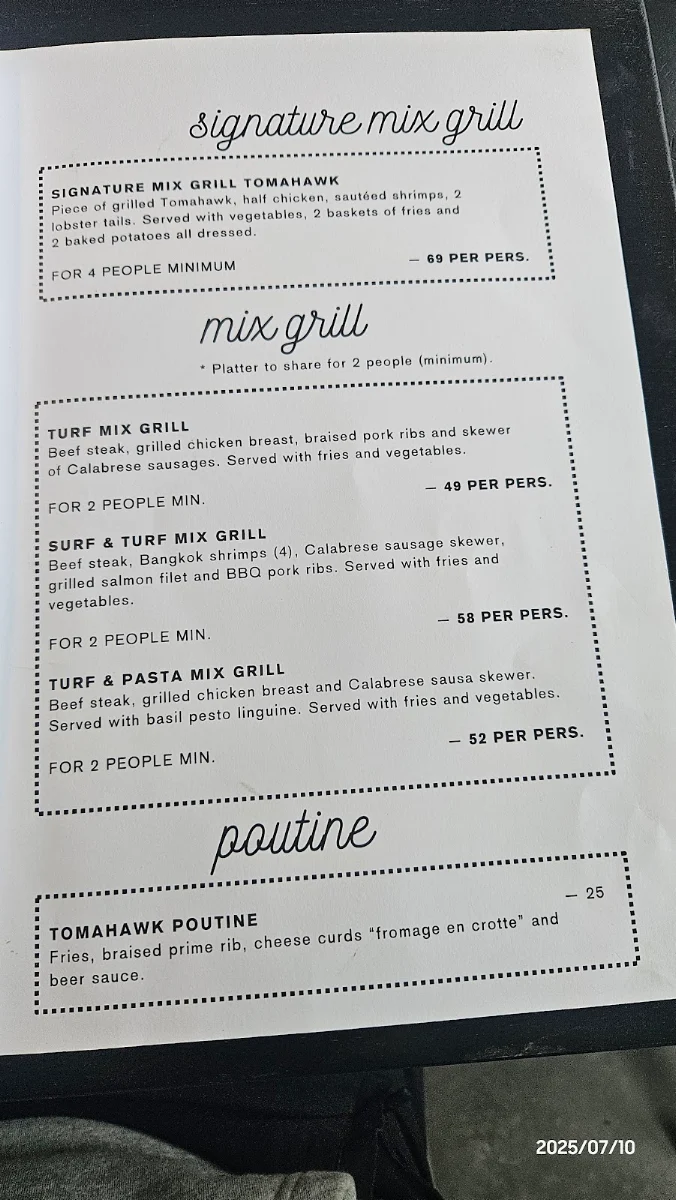 signature mix grill
SIGNATURE MIX GRILL TOMAHAWK
Piece of grilled Tomahawk, half chicken, sautéed shrimps, 2
lobster tails. Served with vegetables, 2 baskets of fries and
2 baked potatoes all dressed.
FOR 4 PEOPLE MINIMUM — 69 PER PERS.
mix grill
* Platter to share for 2 people (minimum).
TURF MIX GRILL
Beef steak, grilled chicken breast, braised pork ribs and skewer
of Calabrese sausages. Served with fries and vegetables.
FOR 2 PEOPLE MIN. — 49 PER PERS.
SURF & TURF MIX GRILL
Beef steak, Bangkok shrimps (4), Calabrese sausage skewer,
grilled salmon filet and BBQ pork ribs. Served with fries and
vegetables.
FOR 2 PEOPLE MIN. — 58 PER PERS.
TURF & PASTA MIX GRILL
Beef steak, grilled chicken breast and Calabrese sausa skewer.
Served with basil pesto linguine. Served with fries and vegetables.
FOR 2 PEOPLE MIN. — 52 PER PERS.
poutine
TOMAHAWK POUTINE — 25
Fries, braised prime rib, cheese curds “fromage en crotte” and
beer sauce.
2025/07/10